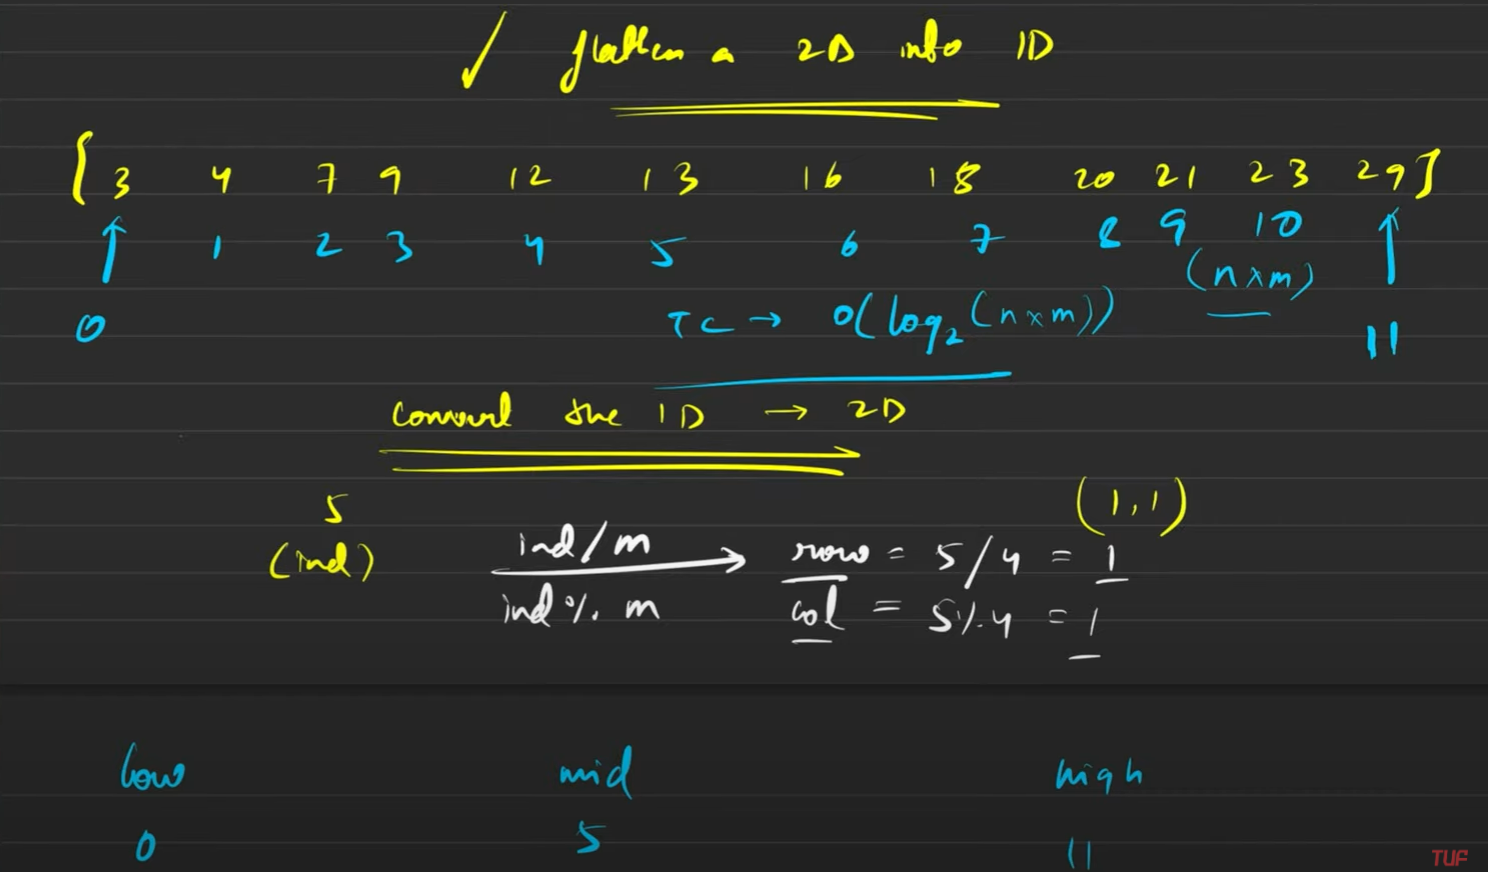 ✓ flatten a 2D into 1D
[3 4 7 9 12 13 16 18 20 21 23 29]
0 1 2 3 4 5 6 7 8 9 10 11
(n×m)
TC → O(log₂(n×m))
convert the 1D → 2D
5
(ind)
(1,1)
ind/m row = 5/4 = 1
ind % m col = 5%4 = 1
low mid high
0 5 11
TUF